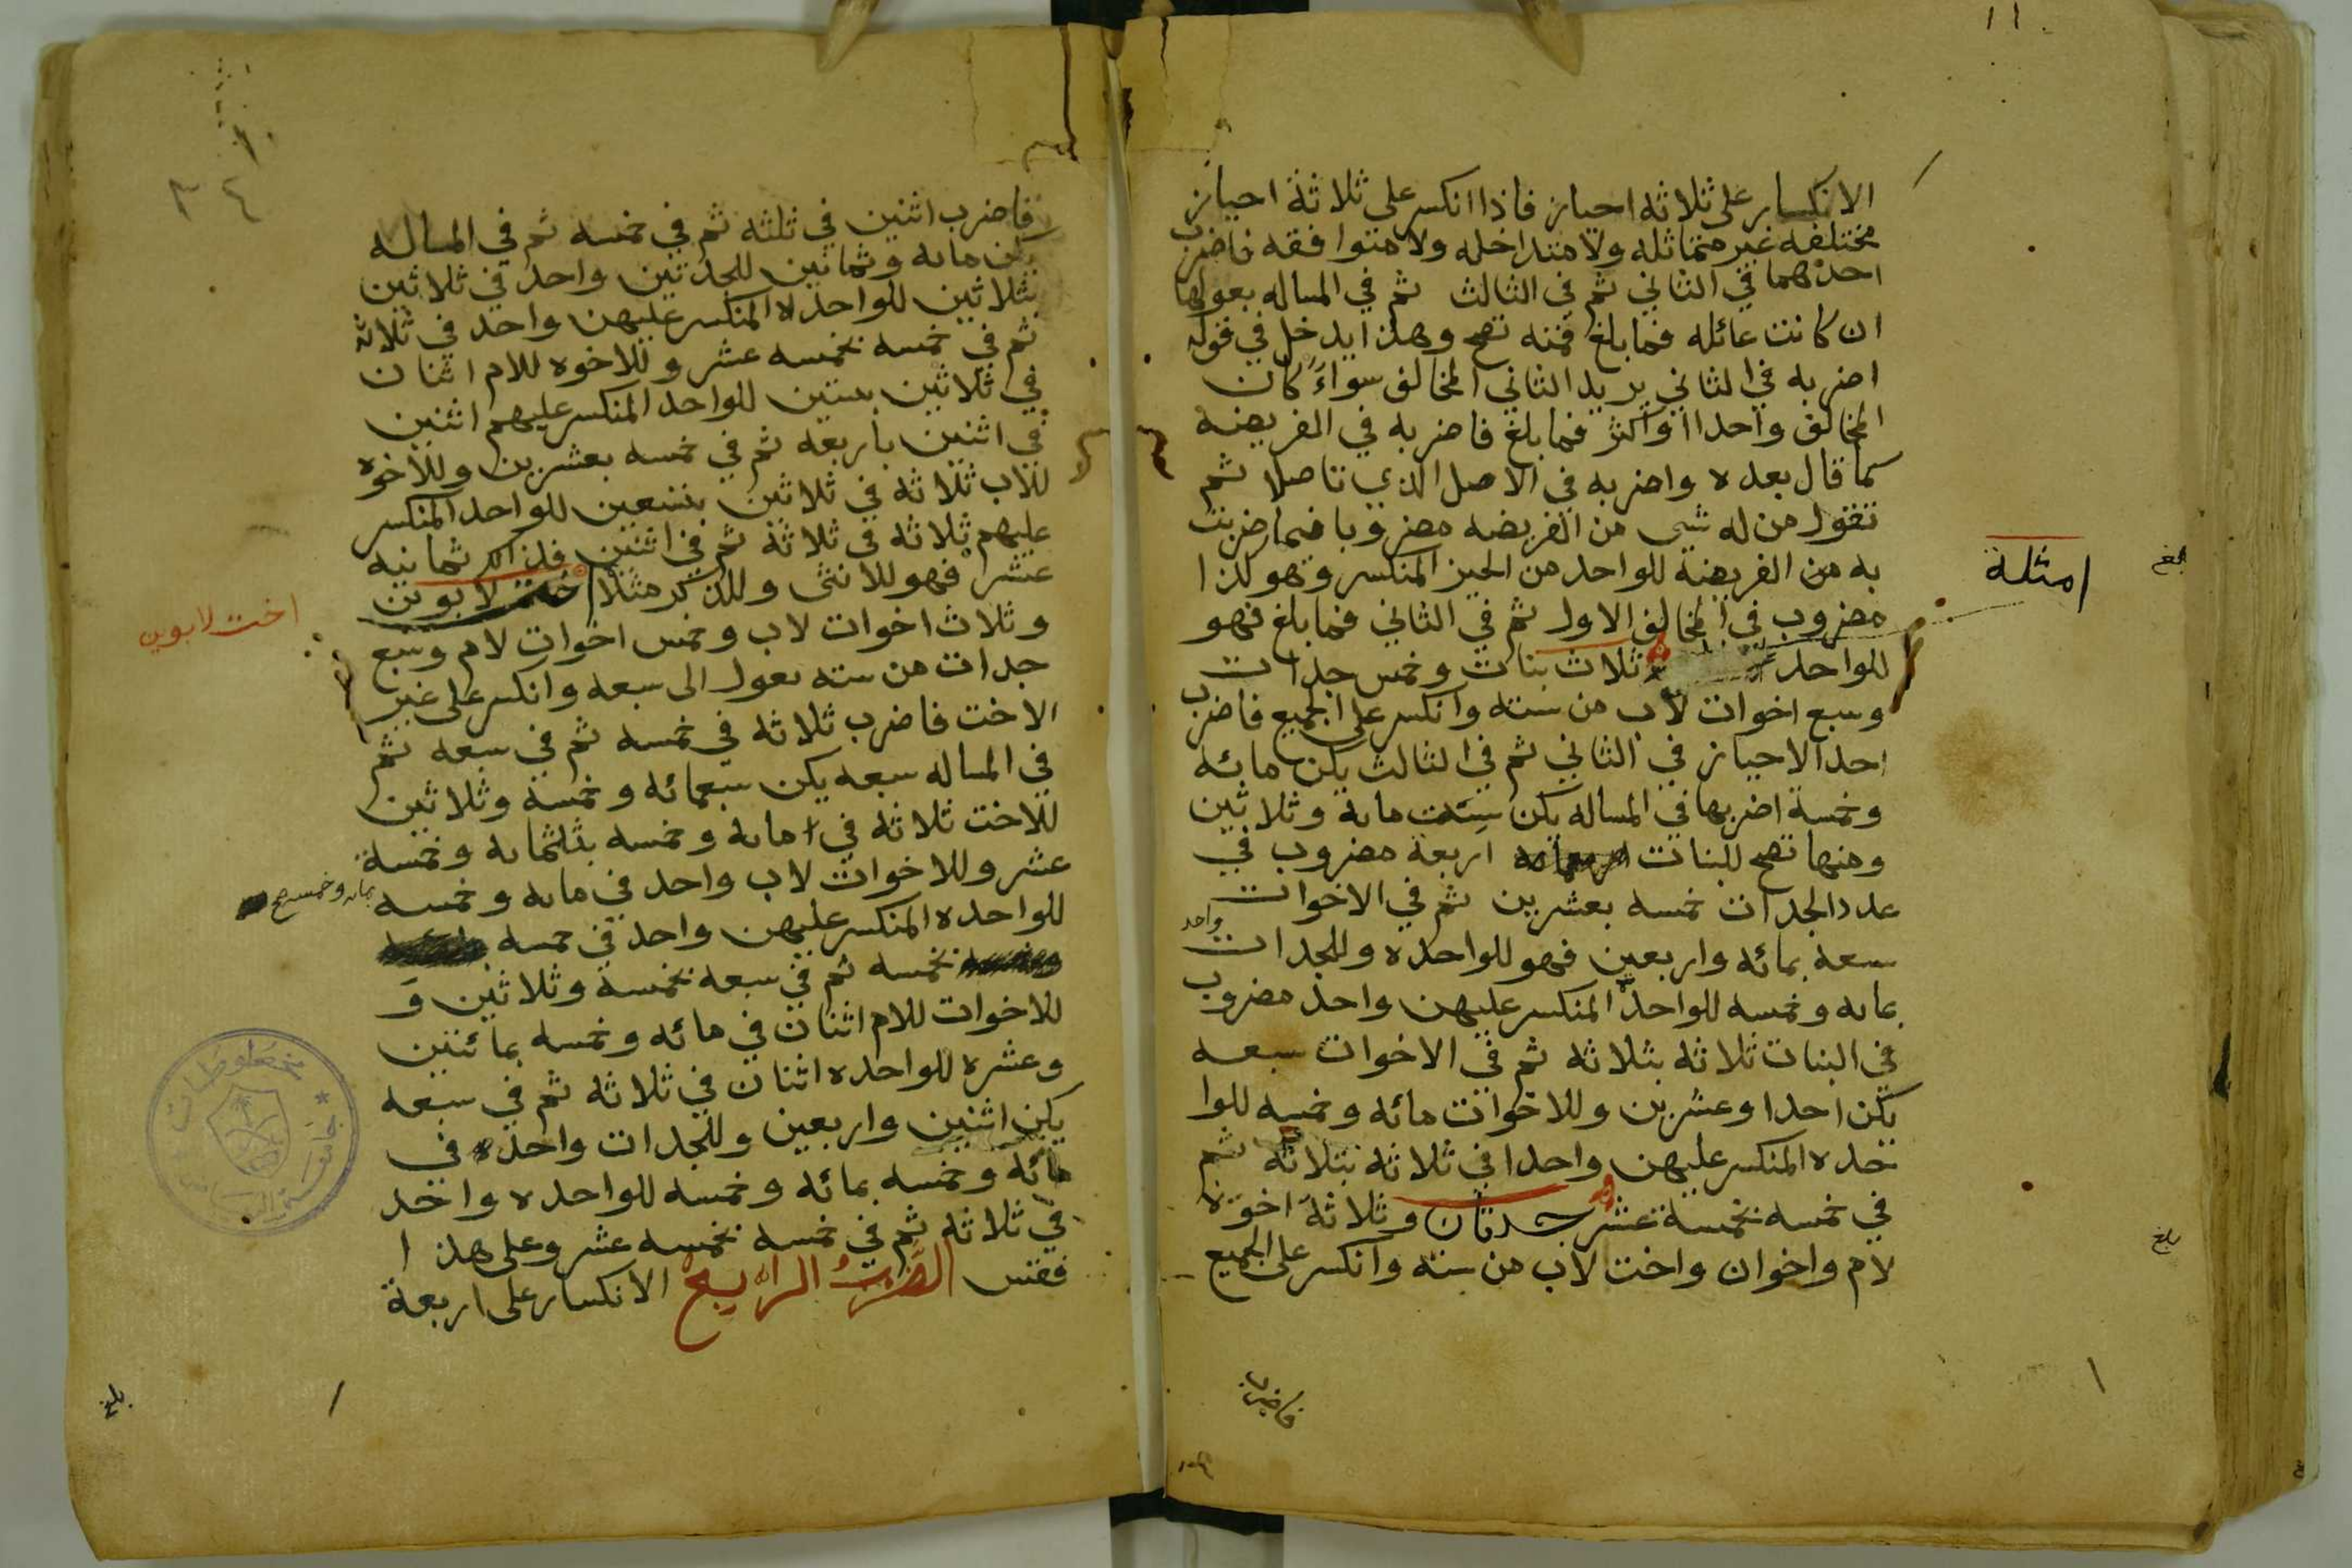 الانكسار على ثلاثه احياز فاذا انكسر على ثلاثة احياز
مختلفه غير متماثله ولا متداخله ولا متوافقه فاضرب
احدهما في الثاني ثم في الثالث ثم في المساله بعولها
ان كانت عائله فما بلغ فمنه تصح وهذا يدخل في قوله
اضربه في الثاني يريد الثاني المخالف سواءً كان
المخالف واحدا او اكثر فما بلغ فاضربه في الفريضه
كما قال بعده واضربه في الاصل الذي تاصلا ثم
تقول من له شي من الفريضه مضروبا فيما ضربت
به من الفريضة للواحد من الحيز المنكسر وهو كذا
مضروب في المخالف الاول ثم في الثاني فما بلغ فهو
للواحد ثلاث بنات وخمس جدات
وسبع اخوات لاب من سته وانكسر على الجميع فاضرب
احد الاحياز في الثاني ثم في الثالث يكن مائه
وخمسة اضربها في المساله يكن ستمت مايه وثلاثين
ومنها تصح للبنات اربعة مضروب في
عدد الجدات خمسه بعشرين ثم في الاخوات
سبعه بمائه واربعين فهو للواحده وللجدات واحد
بمايه وخمسه للواحدة المنكسر عليهن واحد مضروب
في البنات ثلاثه بثلاثه ثم في الاخوات سبعه
يكن احدا وعشرين وللاخوات مائه وخمسه للوا
حده المنكسر عليهن واحدا في ثلاثه بثلاثه ثم
في خمسه بخمسة عشر جدتان وثلاثة اخوة
لام واخوان واخت لاب من سته وانكسر على الجميع
فاضرب
امثلة
بلغ
بلغ
فاضرب اثنين في ثلثه ثم في خمسه ثم في المساله
يكن مايه وثمانين للجدتين واحد في ثلاثين
بثلاثين للواحده المنكسر عليهن واحد في ثلاثه
ثم في خمسه بخمسه عشر وللاخوه للام اثنان
في ثلاثين بستين للواحد المنكسر عليهم اثنين
في اثنين باربعه ثم في خمسه بعشرين وللاخوه
للاب ثلاثه في ثلاثين بتسعين للواحد المنكسر
عليهم ثلاثه في ثلاثة ثم في اثنين فلذالك ثمانيه
عشر فهو للانثى وللذكر مثلا اخت لابوين
وثلاث اخوات لاب وخمس اخوات لام وسبع
جدات من سته بعول الى سبعه وانكسر على غير
الاخت فاضرب ثلاثه في خمسه ثم في سبعه ثم
في المساله سبعه يكن سبعمائه وخمسة وثلاثين
للاخت ثلاثه في مايه وخمسه بثلثمايه وخمسة
عشر وللاخوات لاب واحد في مايه وخمسه بمايه وخمسه صح
للواحده المنكسر عليهن واحد في خمسه
بخمسه ثم في سبعه بخمسة وثلاثين وَ
للاخوات للام اثنان في مائه وخمسه بمائتين
وعشره للواحده اثنان في ثلاثه ثم في سبعه
يكن اثنين واربعين وللجدات واحد في
مائه وخمسه بمائه وخمسه للواحده واحد
في ثلاثه ثم في خمسه بخمسه عشر وعلى هذا
فقس الضرب الرابع الانكسار على اربعة
اخت لابوين
٣٤
بلغ